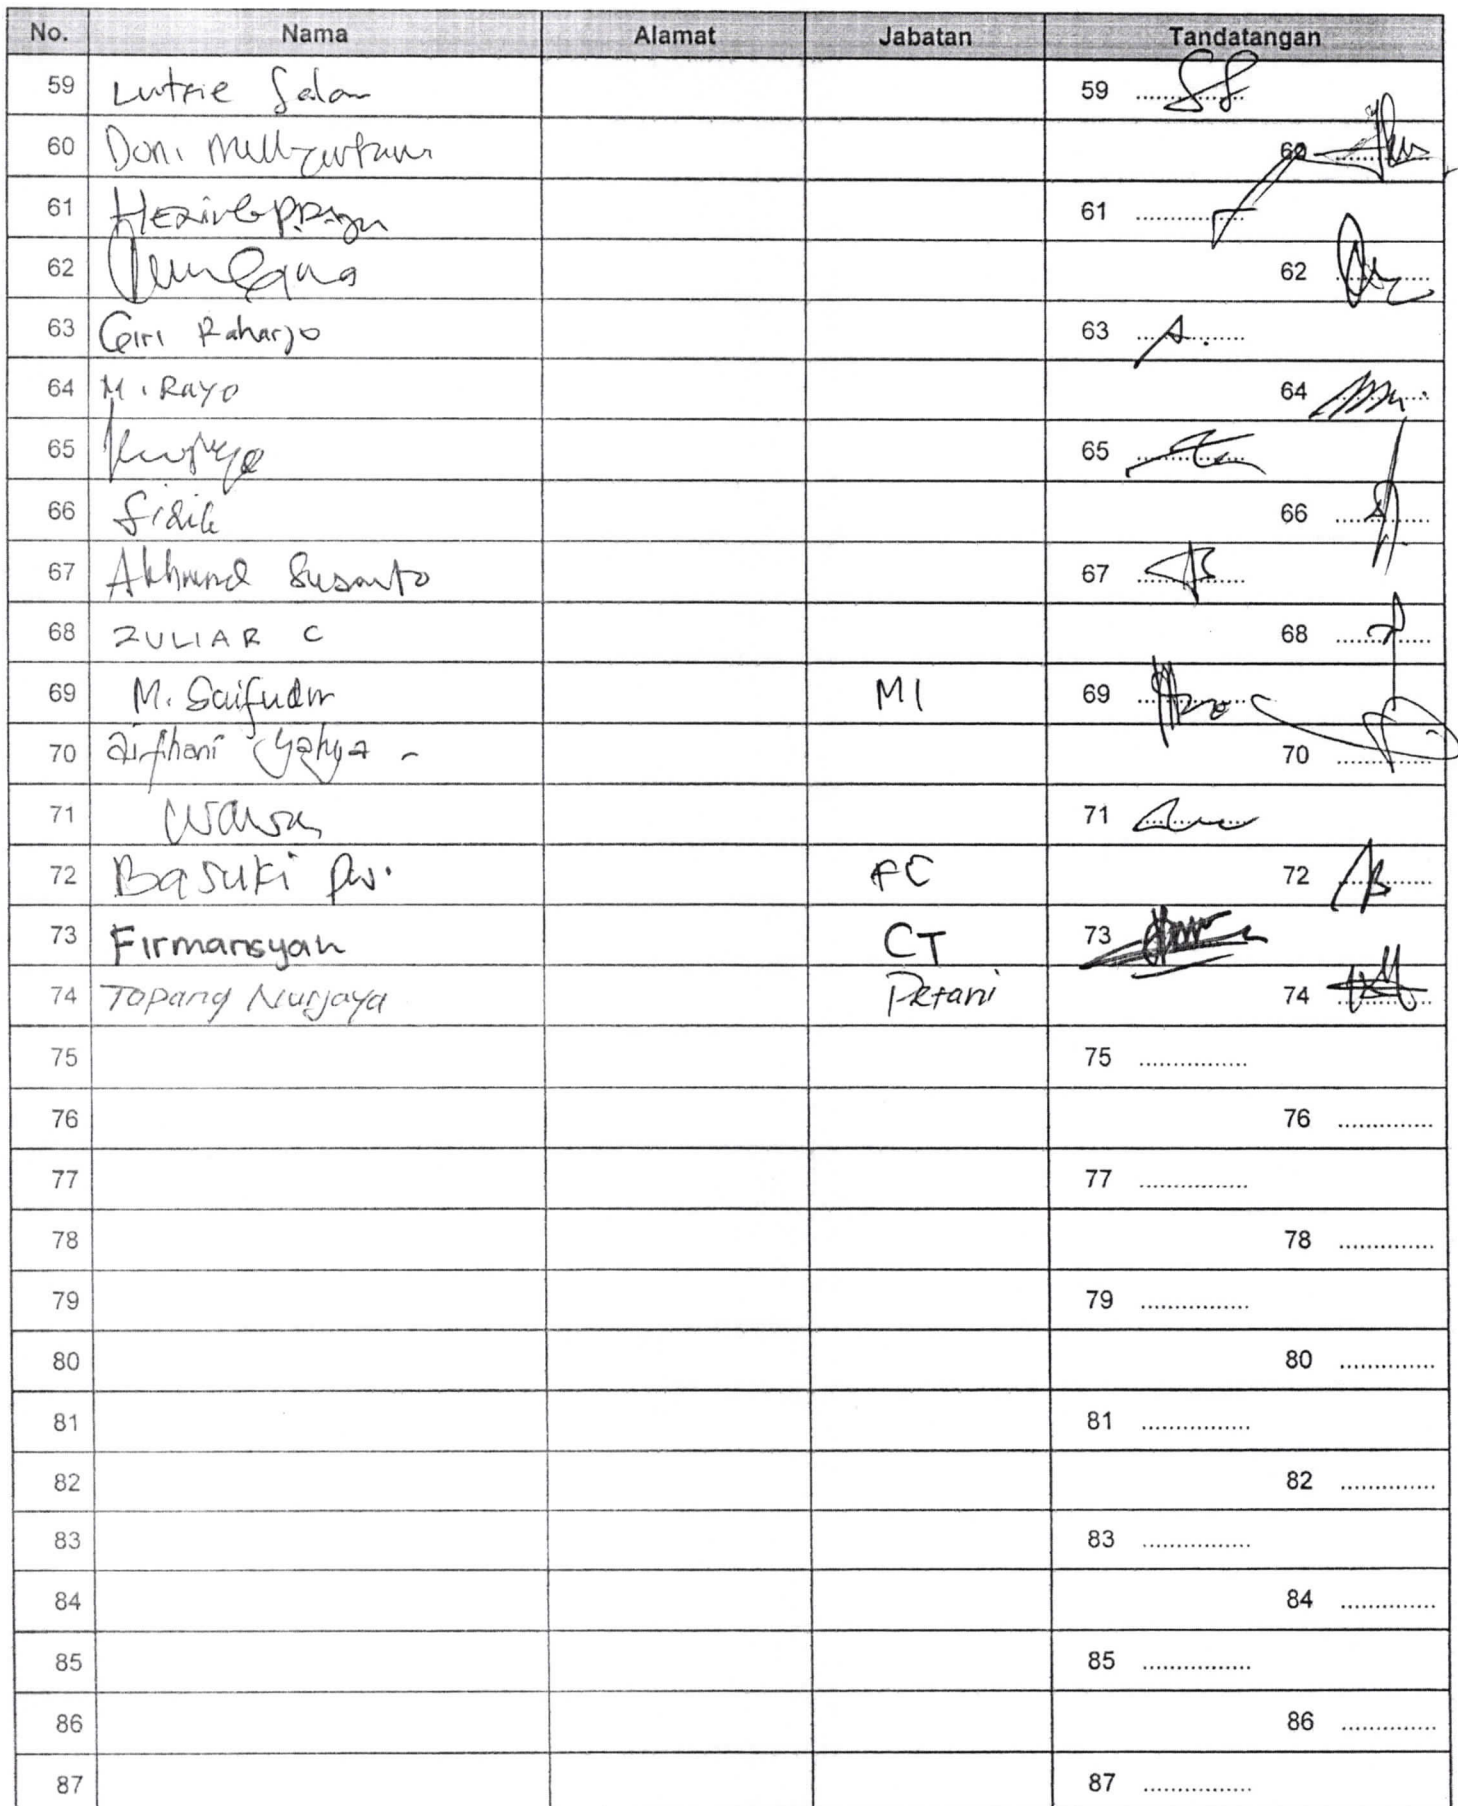 No. Nama Alamat Jabatan Tandatangan
59 Lutfie Salam 59
60 Doni 60
61 61
62 62
63 Giri Raharjo 63
64 M. Rayo 64
65 65
66 Sidik 66
67 Akhmad Susanto 67
68 ZULIAR C 68
69 M. Saifudin MI 69
70 Yahya 70
71 Wawan 71
72 Basuki FC 72
73 Firmansyah CT 73
74 Topang Nurjaya Petani 74
75 75
76 76
77 77
78 78
79 79
80 80
81 81
82 82
83 83
84 84
85 85
86 86
87 87